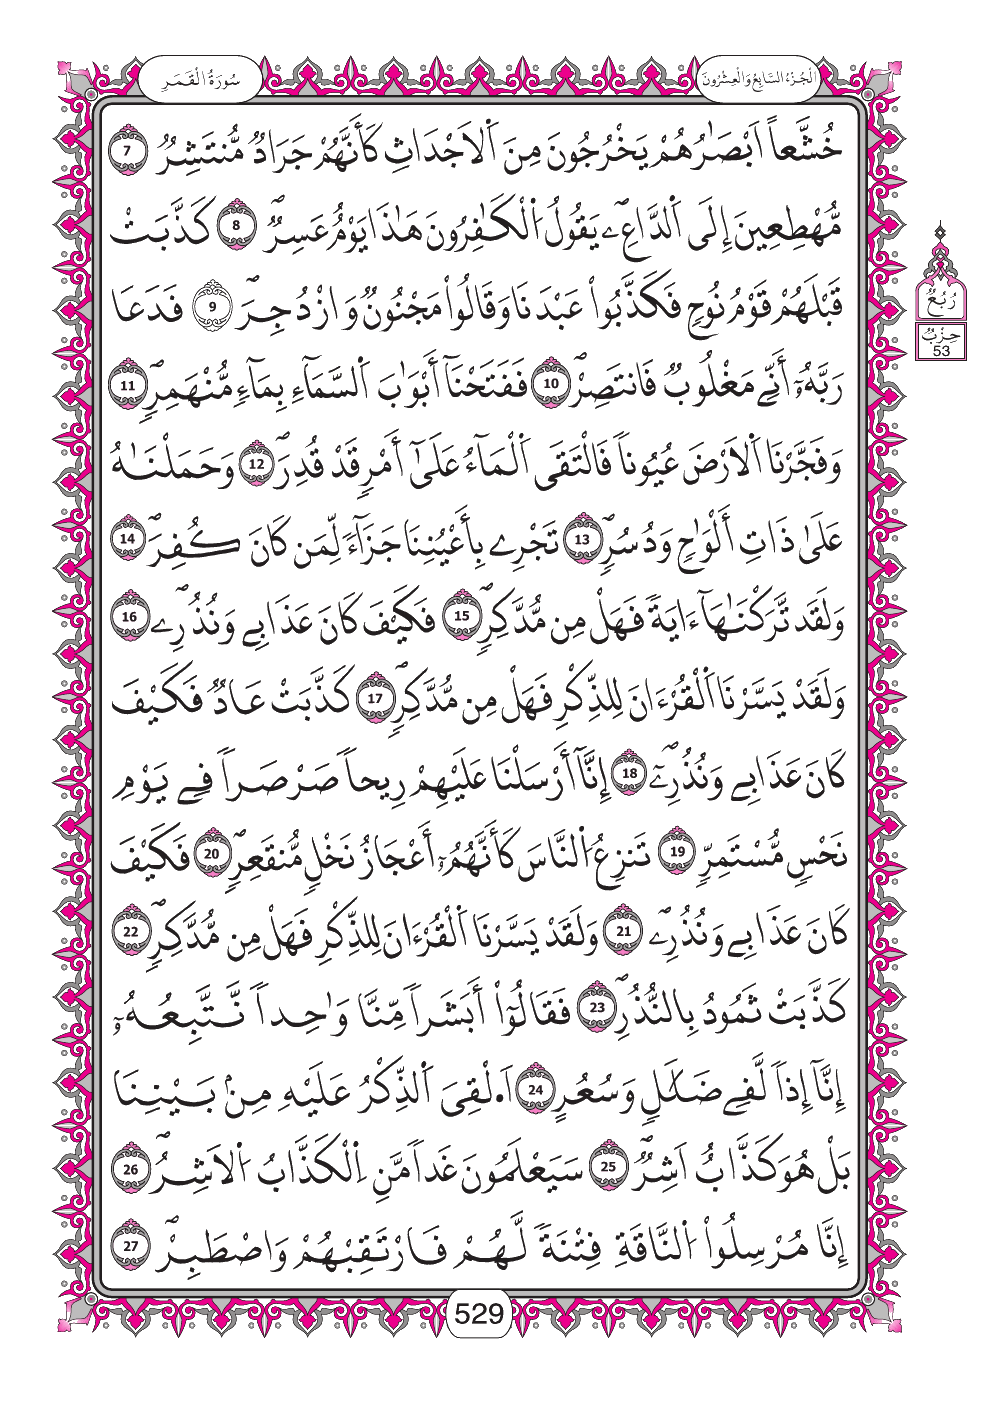 سُورَةُ الْقَمَرِ
الْجُزْءُ السَّابِعُ وَالْعِشْرُونَ
خُشَّعاً اَبْصَٰرُهُمْ يَخْرُجُونَ مِنَ اَ۬لَاجْدَاثِ كَأَنَّهُمْ جَرَادٞ مُّنتَشِرٞ 7
مُّهْطِعِينَ إِلَى اَ۬لدَّاعِۦ يَقُولُ اُ۬لْكَٰفِرُونَ هَٰذَا يَوْمٌ عَسِرٞ 8 كَذَّبَتْ
قَبْلَهُمْ قَوْمُ نُوحٖ فَكَذَّبُواْ عَبْدَنَا وَقَالُواْ مَجْنُونٞ وَازْدُجِرَ 9 فَدَعَا
رَبَّهُۥٓ أَنِّے مَغْلُوبٞ فَانتَصِرْ 10 فَفَتَحْنَآ أَبْوَٰبَ اَ۬لسَّمَآءِ بِمَآءٖ مُّنْهَمِرٖ 11
وَفَجَّرْنَا اَ۬لَارْضَ عُيُوناٗ فَالْتَقَى اَ۬لْمَآءُ عَلَىٰٓ أَمْرٖ قَدْ قُدِرَ 12 وَحَمَلْنَٰهُ
عَلَىٰ ذَاتِ أَلْوَٰحٖ وَدُسُرٖ 13 تَجْرِے بِأَعْيُنِنَا جَزَآءٗ لِّمَن كَانَ كُفِرَ 14
وَلَقَد تَّرَكْنَٰهَآ ءَايَةٗ فَهَلْ مِن مُّدَّكِرٖ 15 فَكَيْفَ كَانَ عَذَابِے وَنُذُرِۦ 16
وَلَقَدْ يَسَّرْنَا اَ۬لْقُرْءَانَ لِلذِّكْرِ فَهَلْ مِن مُّدَّكِرٖ 17 كَذَّبَتْ عَادٞ فَكَيْفَ
كَانَ عَذَابِے وَنُذُرِۦٓ 18 إِنَّآ أَرْسَلْنَا عَلَيْهِمْ رِيحاٗ صَرْصَراٗ فِے يَوْمِ
نَحْسٖ مُّسْتَمِرّٖ 19 تَنزِعُ اُ۬لنَّاسَ كَأَنَّهُمُۥٓ أَعْجَازُ نَخْلٖ مُّنقَعِرٖ 20 فَكَيْفَ
كَانَ عَذَابِے وَنُذُرِۦ 21 وَلَقَدْ يَسَّرْنَا اَ۬لْقُرْءَانَ لِلذِّكْرِ فَهَلْ مِن مُّدَّكِرٖ 22
كَذَّبَتْ ثَمُودُ بِالنُّذُرِ 23 فَقَالُوٓاْ أَبَشَراٗ مِّنَّا وَٰحِداٗ نَّتَّبِعُهُۥٓ
إِنَّآ إِذاٗ لَّفِے ضَلَٰلٖ وَسُعُرٍ 24 اَ۟لْقِيَ اَ۬لذِّكْرُ عَلَيْهِ مِنۢ بَيْنِنَا
بَلْ هُوَ كَذَّابٌ اَشِرٞ 25 سَيَعْلَمُونَ غَداٗ مَّنِ اِ۬لْكَذَّابُ اُ۬لَاشِرُ 26
إِنَّا مُرْسِلُواْ اُ۬لنَّاقَةِ فِتْنَةٗ لَّهُمْ فَارْتَقِبْهُمْ وَاصْطَبِرْ 27
رُبُعٌ
حِزْبٌ
53
529